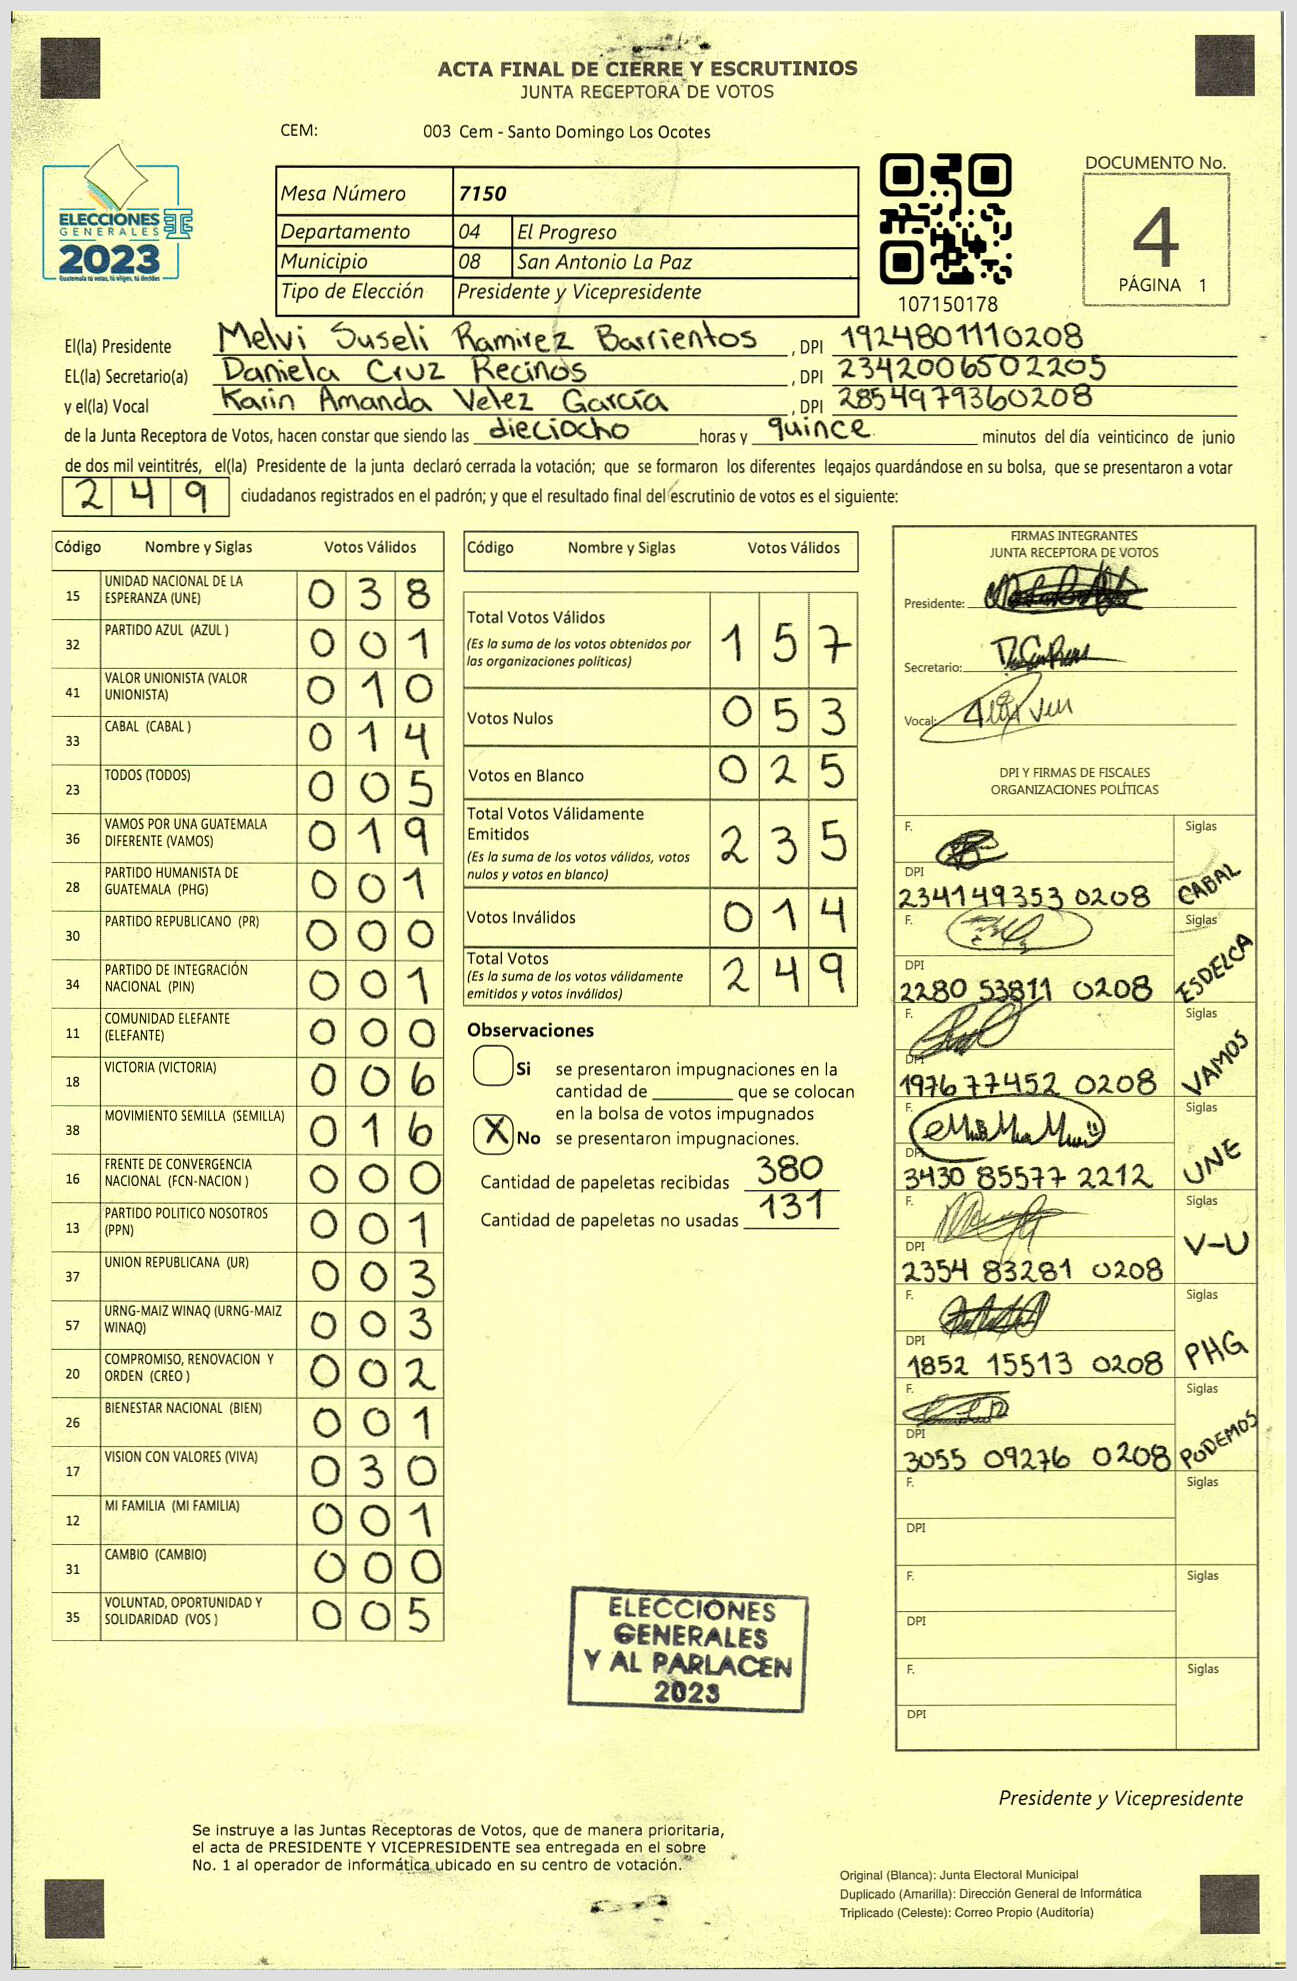 ACTA FINAL DE CIERRE Y ESCRUTINIOS
JUNTA RECEPTORA DE VOTOS
CEM: 003 Cem - Santo Domingo Los Ocotes
ELECCIONES
GENERALES
2023
Guatemala tú votas, tú eliges, tú decides
Mesa Número 7150
Departamento 04 El Progreso
Municipio 08 San Antonio La Paz
Tipo de Elección Presidente y Vicepresidente
107150178
DOCUMENTO No.
4
PÁGINA 1
El(la) Presidente Melvi Suseli Ramirez Barrientos , DPI 1924801110208
EL(la) Secretario(a) Daniela Cruz Recinos , DPI 2342006502205
y el(la) Vocal Karin Amanda Velez García , DPI 2854979360208
de la Junta Receptora de Votos, hacen constar que siendo las dieciocho horas y quince minutos del día veinticinco de junio
de dos mil veintitrés, el(la) Presidente de la junta declaró cerrada la votación; que se formaron los diferentes legajos quardándose en su bolsa, que se presentaron a votar
249 ciudadanos registrados en el padrón; y que el resultado final del escrutinio de votos es el siguiente:
Código Nombre y Siglas Votos Válidos
15 UNIDAD NACIONAL DE LA
ESPERANZA (UNE) 038
32 PARTIDO AZUL (AZUL ) 001
41 VALOR UNIONISTA (VALOR
UNIONISTA) 010
33 CABAL (CABAL ) 014
23 TODOS (TODOS) 005
36 VAMOS POR UNA GUATEMALA
DIFERENTE (VAMOS) 019
28 PARTIDO HUMANISTA DE
GUATEMALA (PHG) 001
30 PARTIDO REPUBLICANO (PR) 000
34 PARTIDO DE INTEGRACIÓN
NACIONAL (PIN) 001
11 COMUNIDAD ELEFANTE
(ELEFANTE) 000
18 VICTORIA (VICTORIA) 006
38 MOVIMIENTO SEMILLA (SEMILLA) 016
16 FRENTE DE CONVERGENCIA
NACIONAL (FCN-NACION ) 000
13 PARTIDO POLITICO NOSOTROS
(PPN) 001
37 UNION REPUBLICANA (UR) 003
57 URNG-MAIZ WINAQ (URNG-MAIZ
WINAQ) 003
20 COMPROMISO, RENOVACION Y
ORDEN (CREO ) 002
26 BIENESTAR NACIONAL (BIEN) 001
17 VISION CON VALORES (VIVA) 030
12 MI FAMILIA (MI FAMILIA) 001
31 CAMBIO (CAMBIO) 000
35 VOLUNTAD, OPORTUNIDAD Y
SOLIDARIDAD (VOS ) 005
Código Nombre y Siglas Votos Válidos
Total Votos Válidos 157
(Es la suma de los votos obtenidos por
las organizaciones políticas)
Votos Nulos 053
Votos en Blanco 025
Total Votos Válidamente
Emitidos 235
(Es la suma de los votos válidos, votos
nulos y votos en blanco)
Votos Inválidos 014
Total Votos 249
(Es la suma de los votos válidamente
emitidos y votos inválidos)
Observaciones
Si se presentaron impugnaciones en la
cantidad de ________ que se colocan
en la bolsa de votos impugnados
X No se presentaron impugnaciones.
Cantidad de papeletas recibidas 380
Cantidad de papeletas no usadas 131
FIRMAS INTEGRANTES
JUNTA RECEPTORA DE VOTOS
Presidente:
Secretario:
Vocal:
DPI Y FIRMAS DE FISCALES
ORGANIZACIONES POLÍTICAS
F. Siglas
DPI
234149353 0208 CABAL
F. Siglas
DPI
2280 53811 0208 ESDELCA
F. Siglas
DPI
1976 77452 0208 VAMOS
F. Siglas
DPI
3430 85577 2212 UNE
F. Siglas
DPI
2354 83281 0208 V-U
F. Siglas
DPI
1852 15513 0208 PHG
F. Siglas
DPI
3055 09276 0208 PODEMOS
F. Siglas
DPI
F. Siglas
DPI
F. Siglas
DPI
ELECCIONES
GENERALES
Y AL PARLACEN
2023
Presidente y Vicepresidente
Se instruye a las Juntas Receptoras de Votos, que de manera prioritaria,
el acta de PRESIDENTE Y VICEPRESIDENTE sea entregada en el sobre
No. 1 al operador de informática ubicado en su centro de votación.
Original (Blanca): Junta Electoral Municipal
Duplicado (Amarilla): Dirección General de Informática
Triplicado (Celeste): Correo Propio (Auditoría)